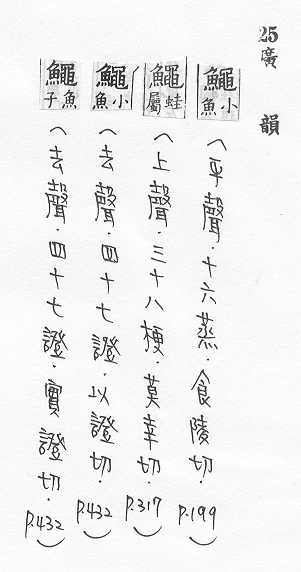 25廣韻
䱆小魚（平聲．十六蒸．食陵切．P.199）
鼆蛙屬（上聲．三十八梗．莫幸切．P.317）
䱆小魚（去聲．四十七證．以證切．P.432）
䱆魚子（去聲．四十七證．實證切．P.432）